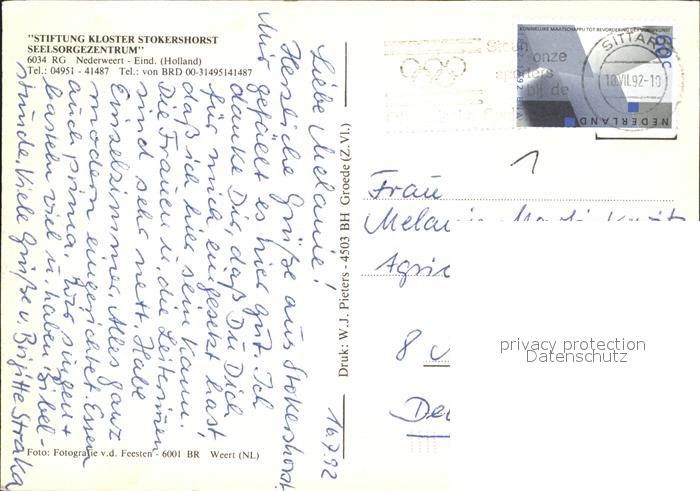 "STIFTUNG KLOSTER STOKERSHORST
SEELSORGEZENTRUM"
6034 RG Nederweert - Eind. (Holland)
Tel.: 04951 - 41487 Tel.: von BRD 00-31495141487
16.7.92
Liebe Melanie!
Herzliche Grüße aus Stokershorst.
Mir gefällt es hier gut. Ich
danke Dir, daß Du Dich
für mich eingesetzt hast,
daß ich hier sein kann.
Die Frauen u. die Leiterinnen
sind sehr nett. Habe
Einzelzimmer. Alles ganz
modern eingerichtet. Essen
auch prima. Wir singen +
basteln viel u. haben Bibel-
stunde. Viele Grüße v. Brigitte Straka
Foto: Fotografie v.d. Feesten - 6001 BR Weert (NL)
Druk: W.J. Pieters - 4503 BH Groede (Z.Vl.)
Steun
onze
sporters
bij de
SITTARD
18.VII.92-10
60c
NEDERLAND
1
Frau
Melan
Agric
8
De
privacy protection
Datenschutz